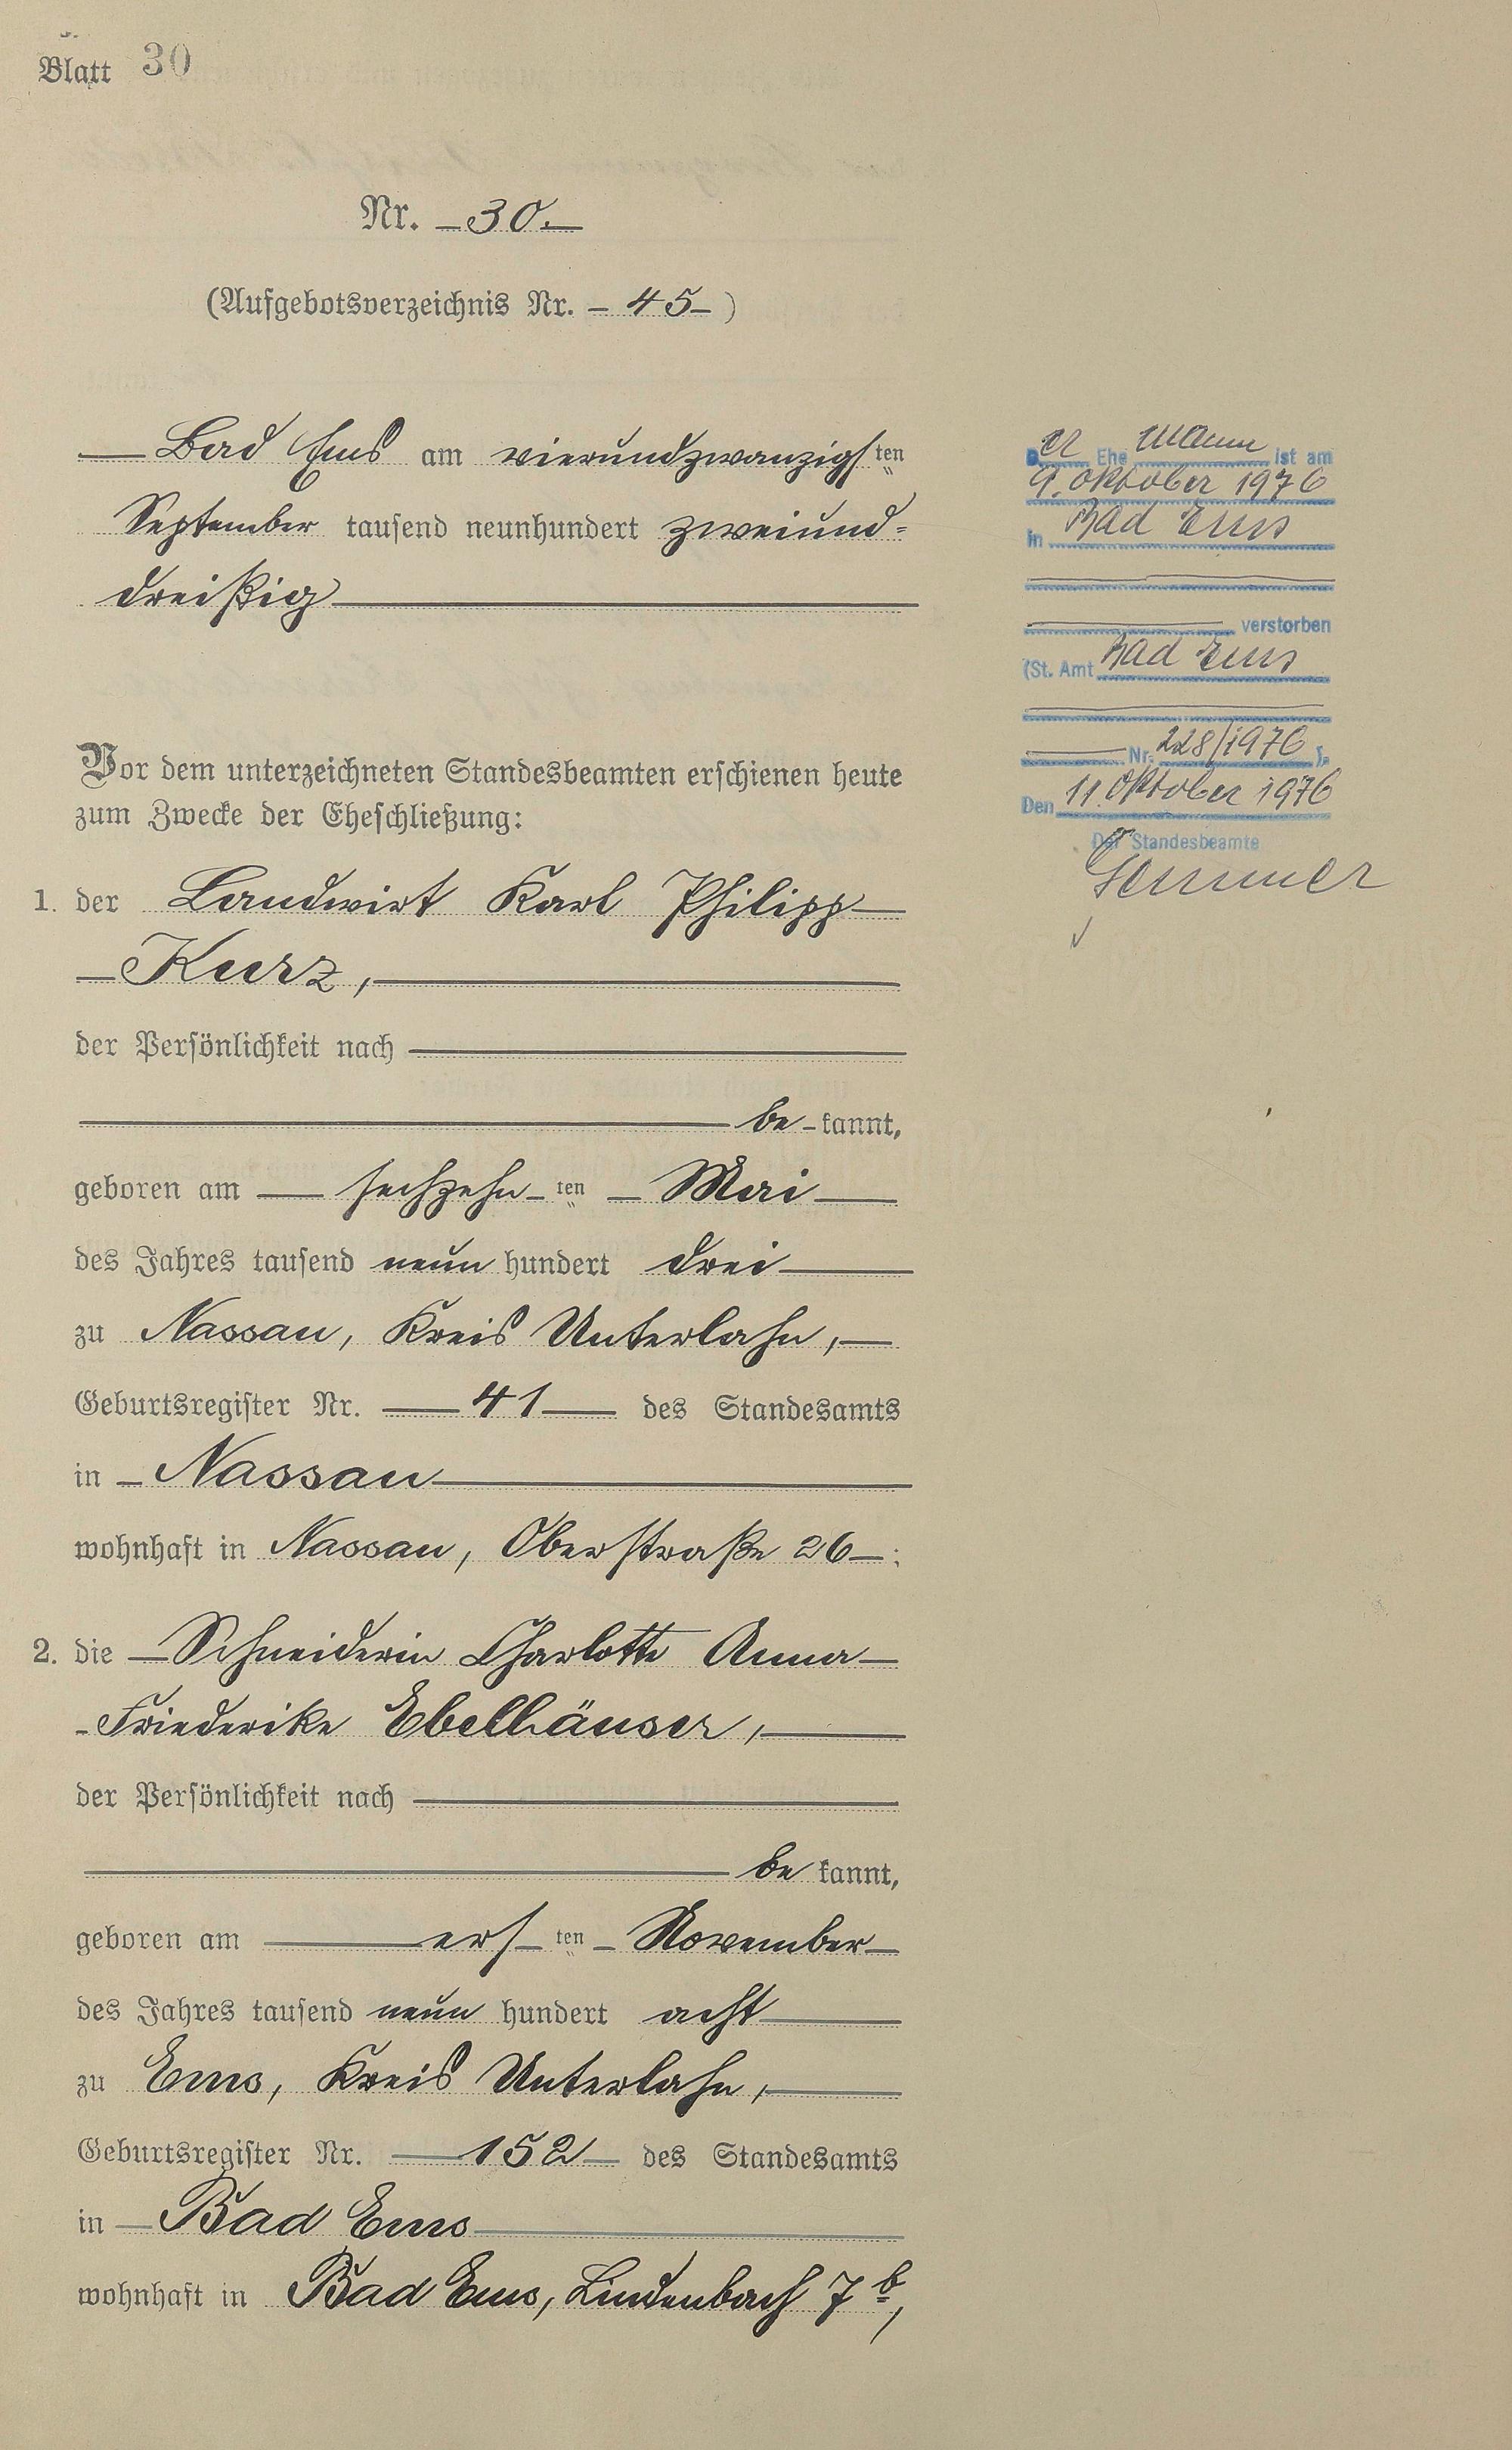 Blatt 30
Nr. – 30. –
(Aufgebotsverzeichnis Nr. – 45 – )
Bad Ems am vierundzwanzigsten
September tausend neunhundert zweiund=
dreißig
Vor dem unterzeichneten Standesbeamten erschienen heute
zum Zwecke der Eheschließung:
1. der Landwirt Karl Philipp
Kurz,
der Persönlichkeit nach
be-kannt,
geboren am sechzehn-ten Mai
des Jahres tausend neun hundert drei
zu Nassau, Kreis Unterlahn,
Geburtsregister Nr. 41 des Standesamts
in Nassau
wohnhaft in Nassau, Oberstraße 26 ;
2. die Schneiderin Charlotte Anna
Friederike Ebelhäuser,
der Persönlichkeit nach
be kannt,
geboren am ers-ten November
des Jahres tausend neun hundert acht
zu Ems, Kreis Unterlahn,
Geburtsregister Nr. 152 des Standesamts
in Bad Ems
wohnhaft in Bad Ems, Lindenbach 7b,
Der Ehe Mann ist am
9. Oktober 1976
in Bad Ems
verstorben
(St. Amt Bad Ems
Nr. 228/1976 ).
Den 11. Oktober 1976
Der Standesbeamte